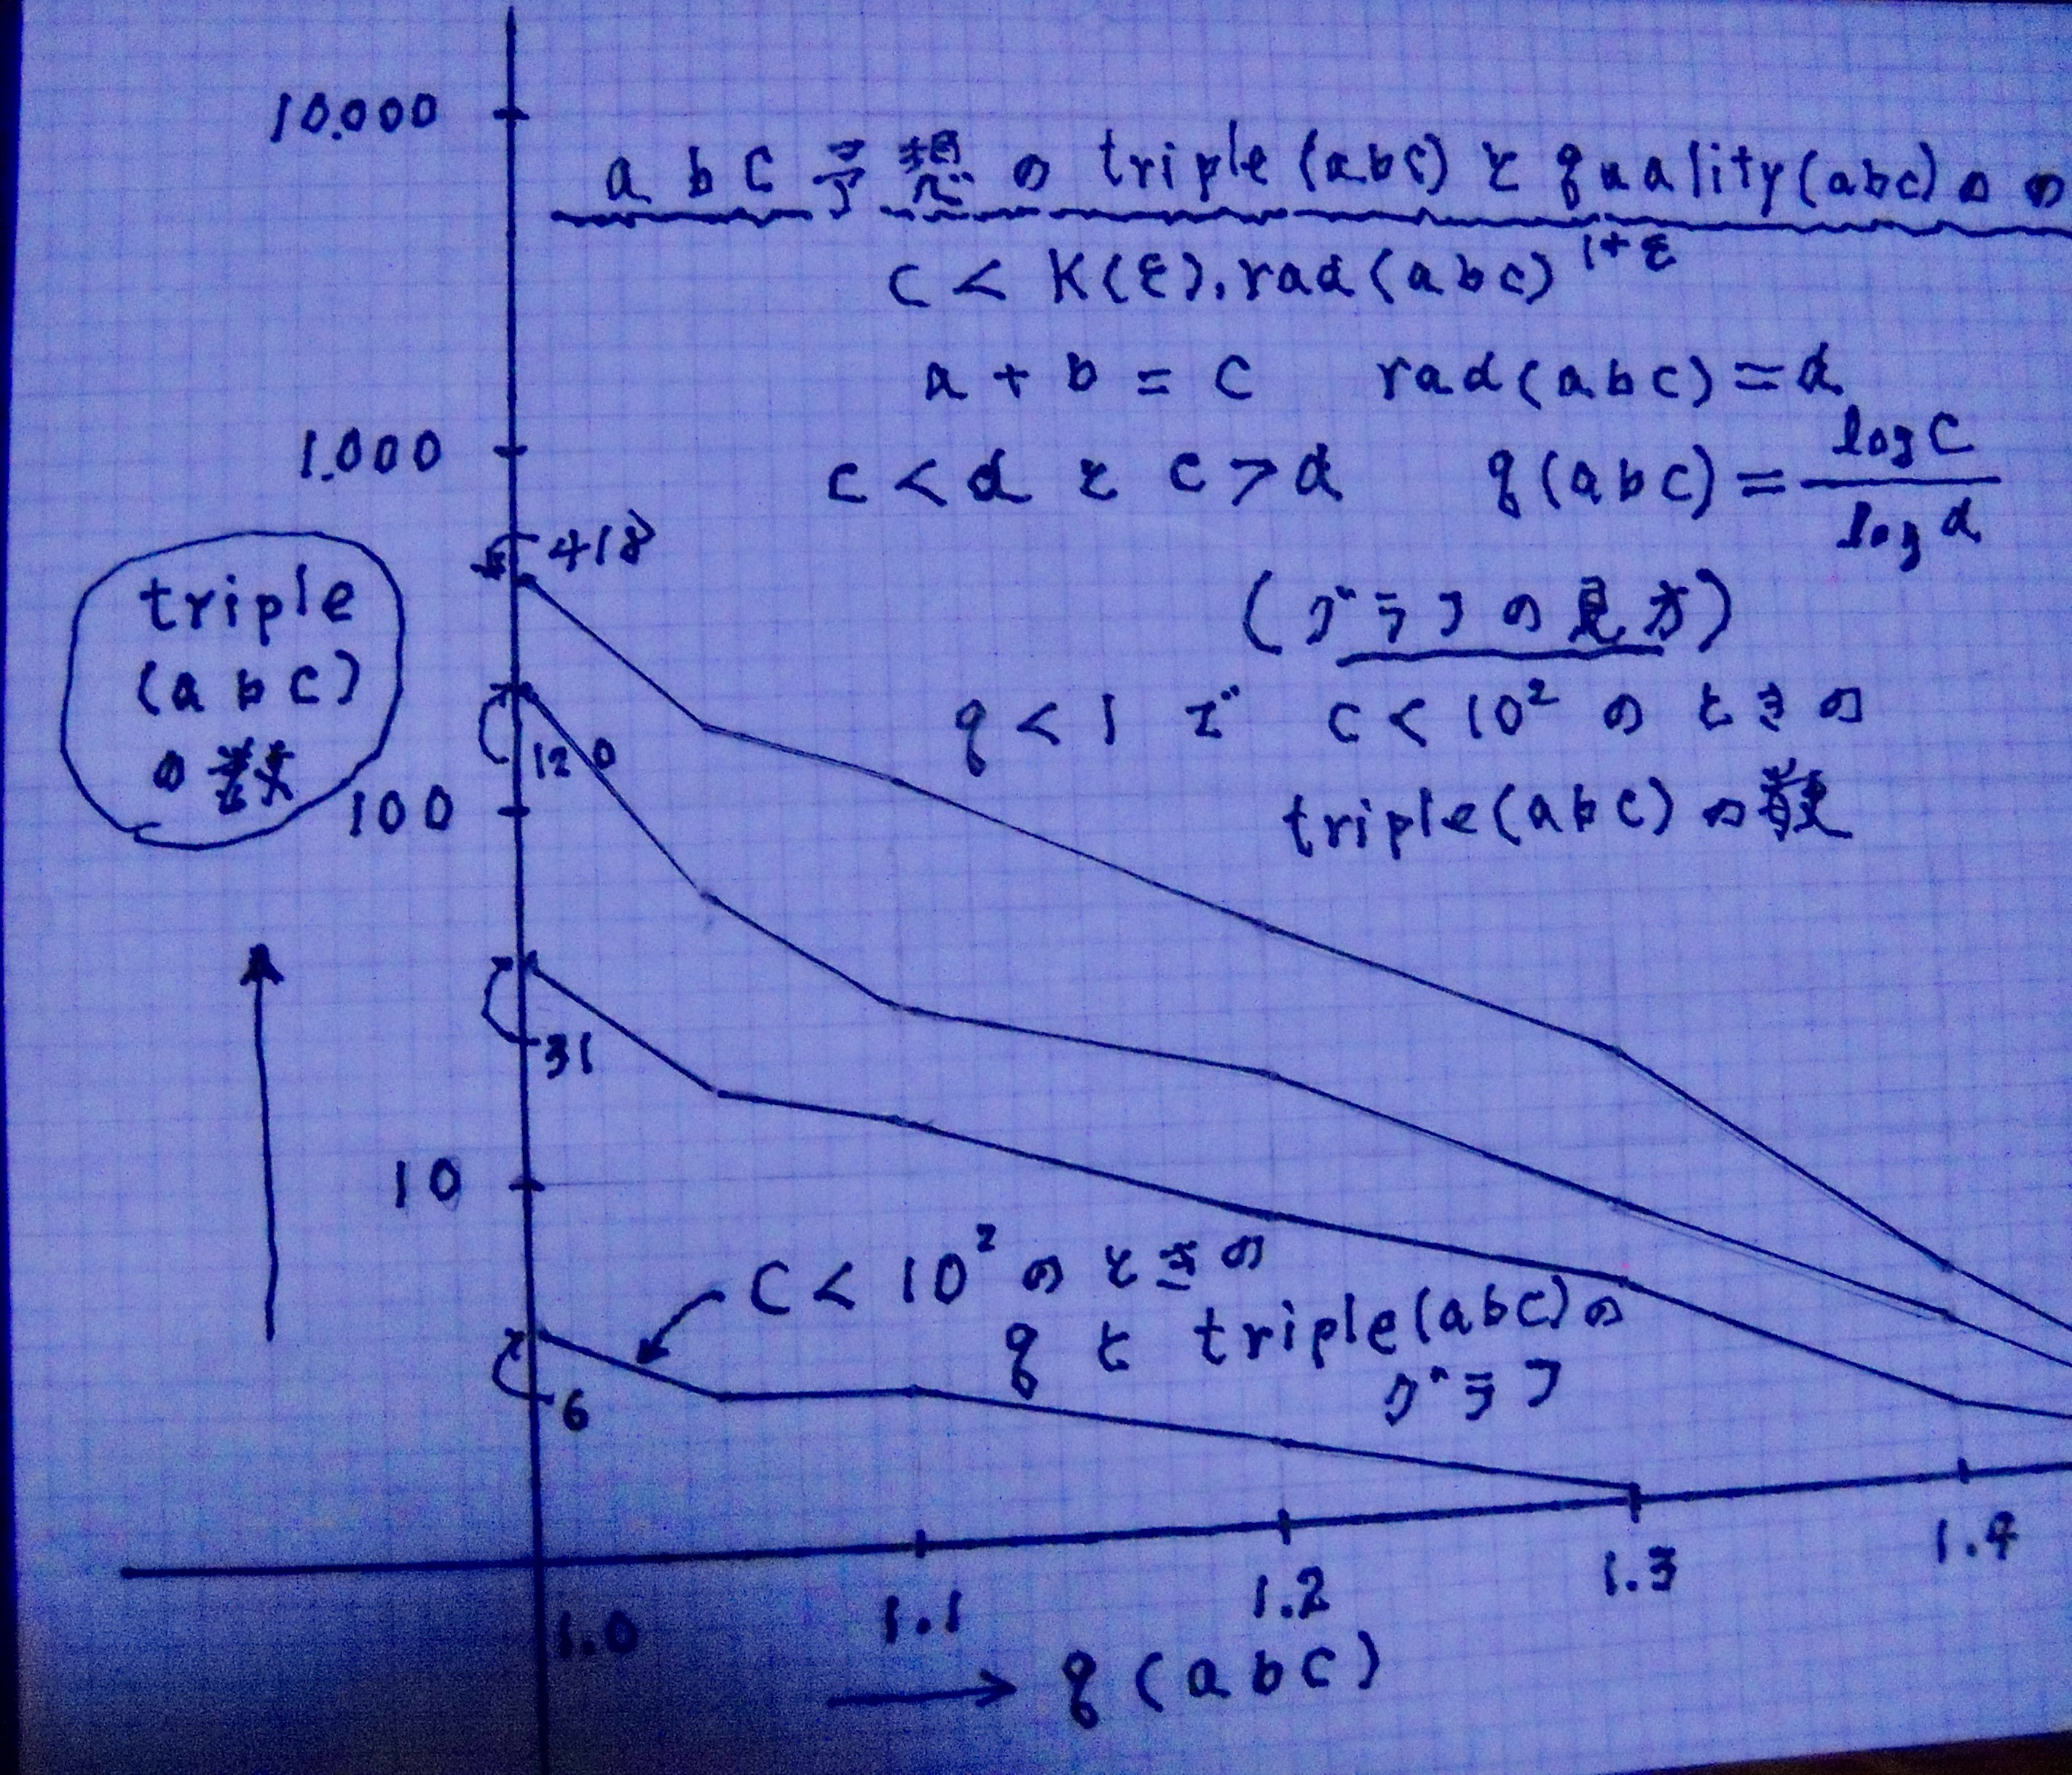 10.000
abc予想の triple(abc)と quality(abc)の
c < K(ε).rad(abc)^1+ε
a + b = c　rad(abc) = d
1.000
c < d と c > d　q(abc) = log c / log d
418
triple
(abc)
の数
(グラフの見方)
q < 1 で c < 10² のときの
triple(abc)の数
120
100
31
10
c < 10² のときの
q と triple(abc)の
グラフ
6
1.0 1.1 1.2 1.3 1.4
→ q(abc)